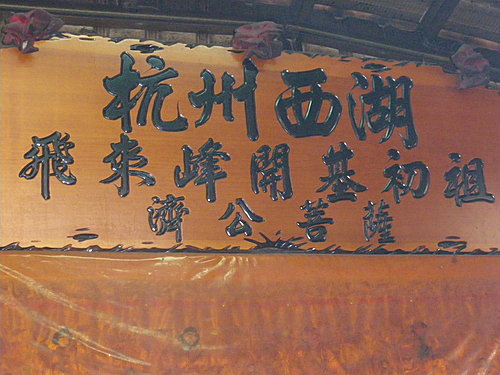 杭州西湖
飛來峰開基初祖
濟公菩薩